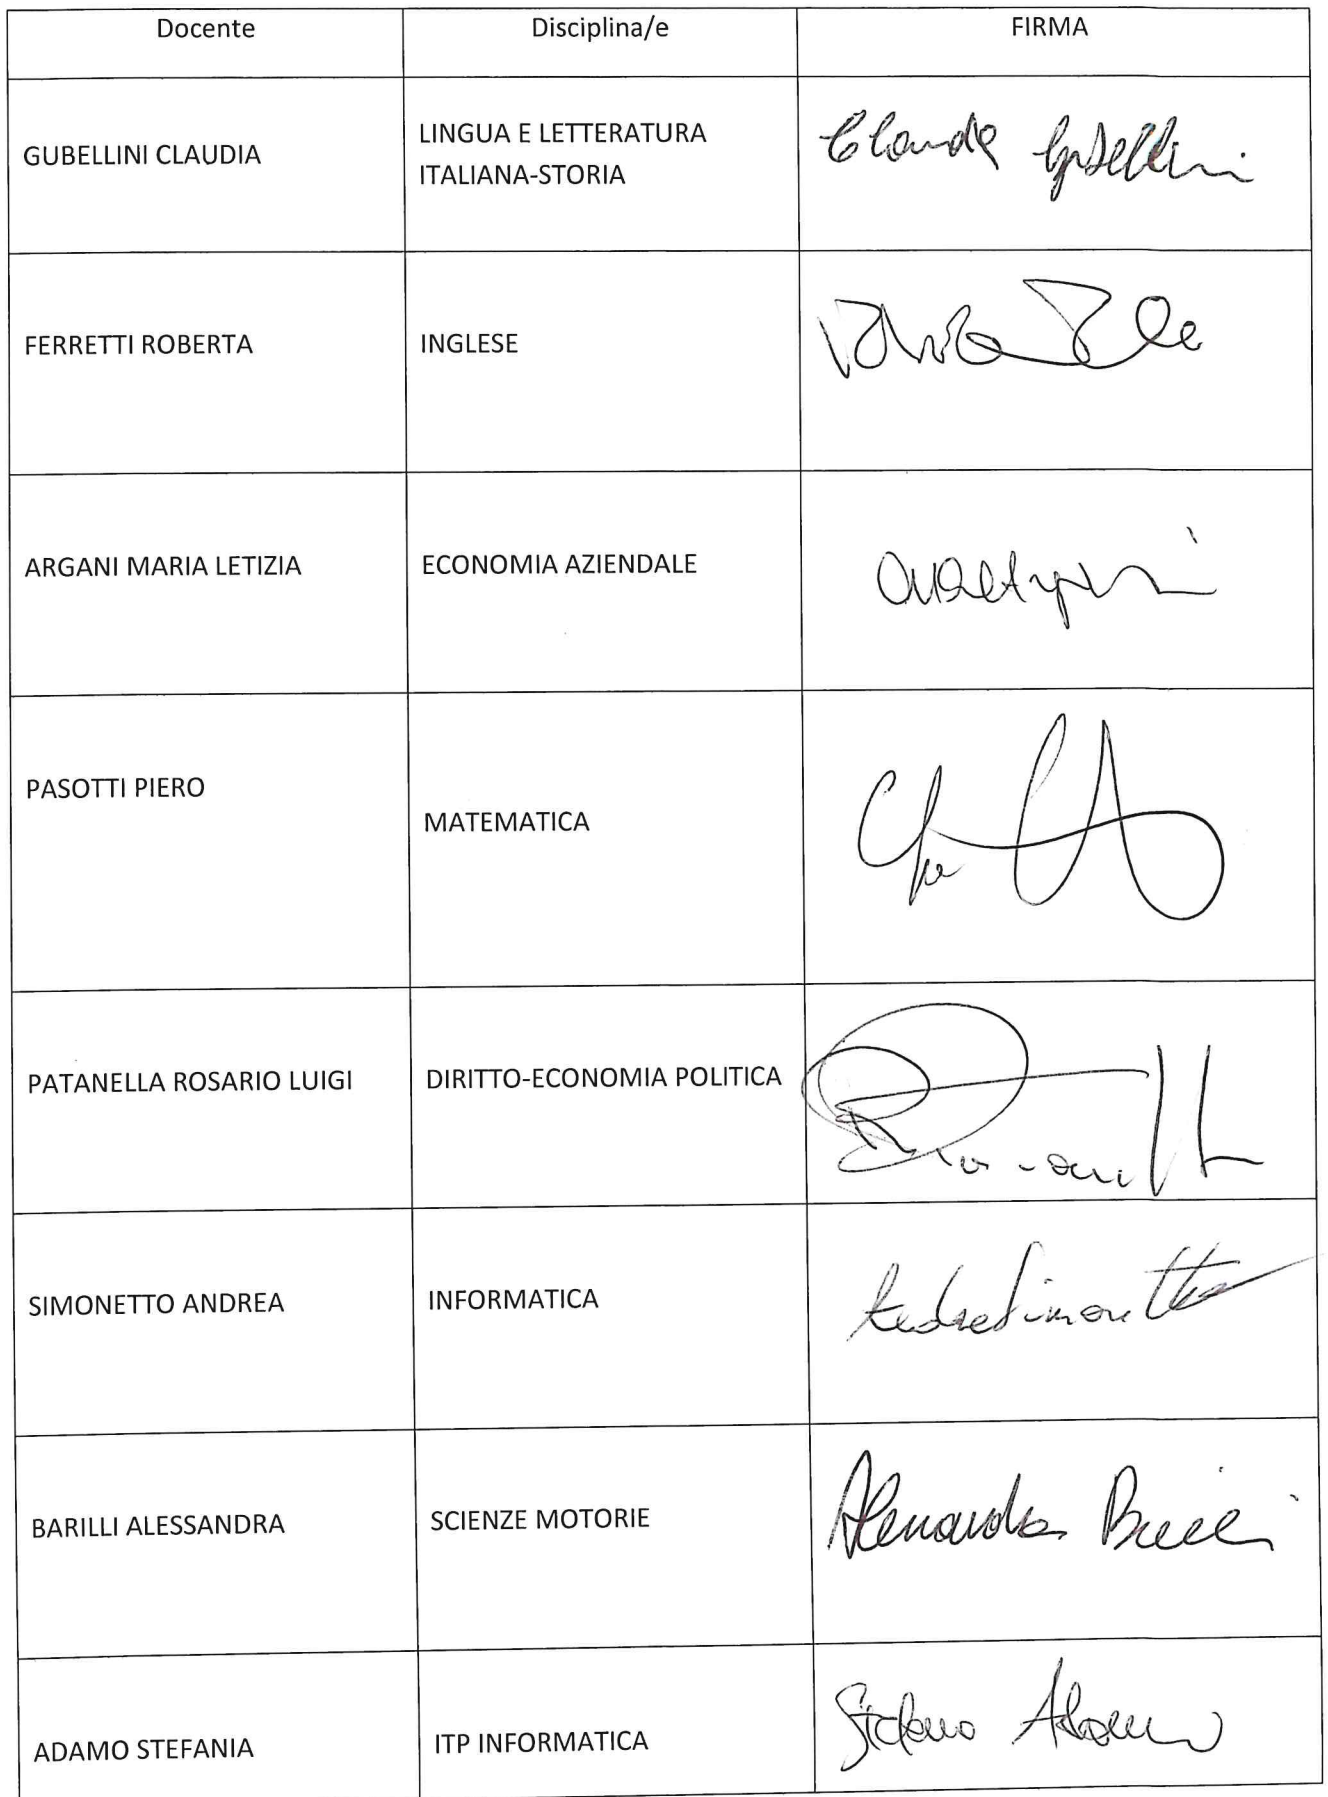 Docente Disciplina/e FIRMA
GUBELLINI CLAUDIA
LINGUA E LETTERATURA
ITALIANA-STORIA
Claudia Gubellini
FERRETTI ROBERTA INGLESE
ARGANI MARIA LETIZIA ECONOMIA AZIENDALE
PASOTTI PIERO
MATEMATICA
PATANELLA ROSARIO LUIGI DIRITTO-ECONOMIA POLITICA
SIMONETTO ANDREA INFORMATICA Andrea Simonetto
BARILLI ALESSANDRA SCIENZE MOTORIE Alessandra Barilli
ADAMO STEFANIA ITP INFORMATICA Stefania Adamo